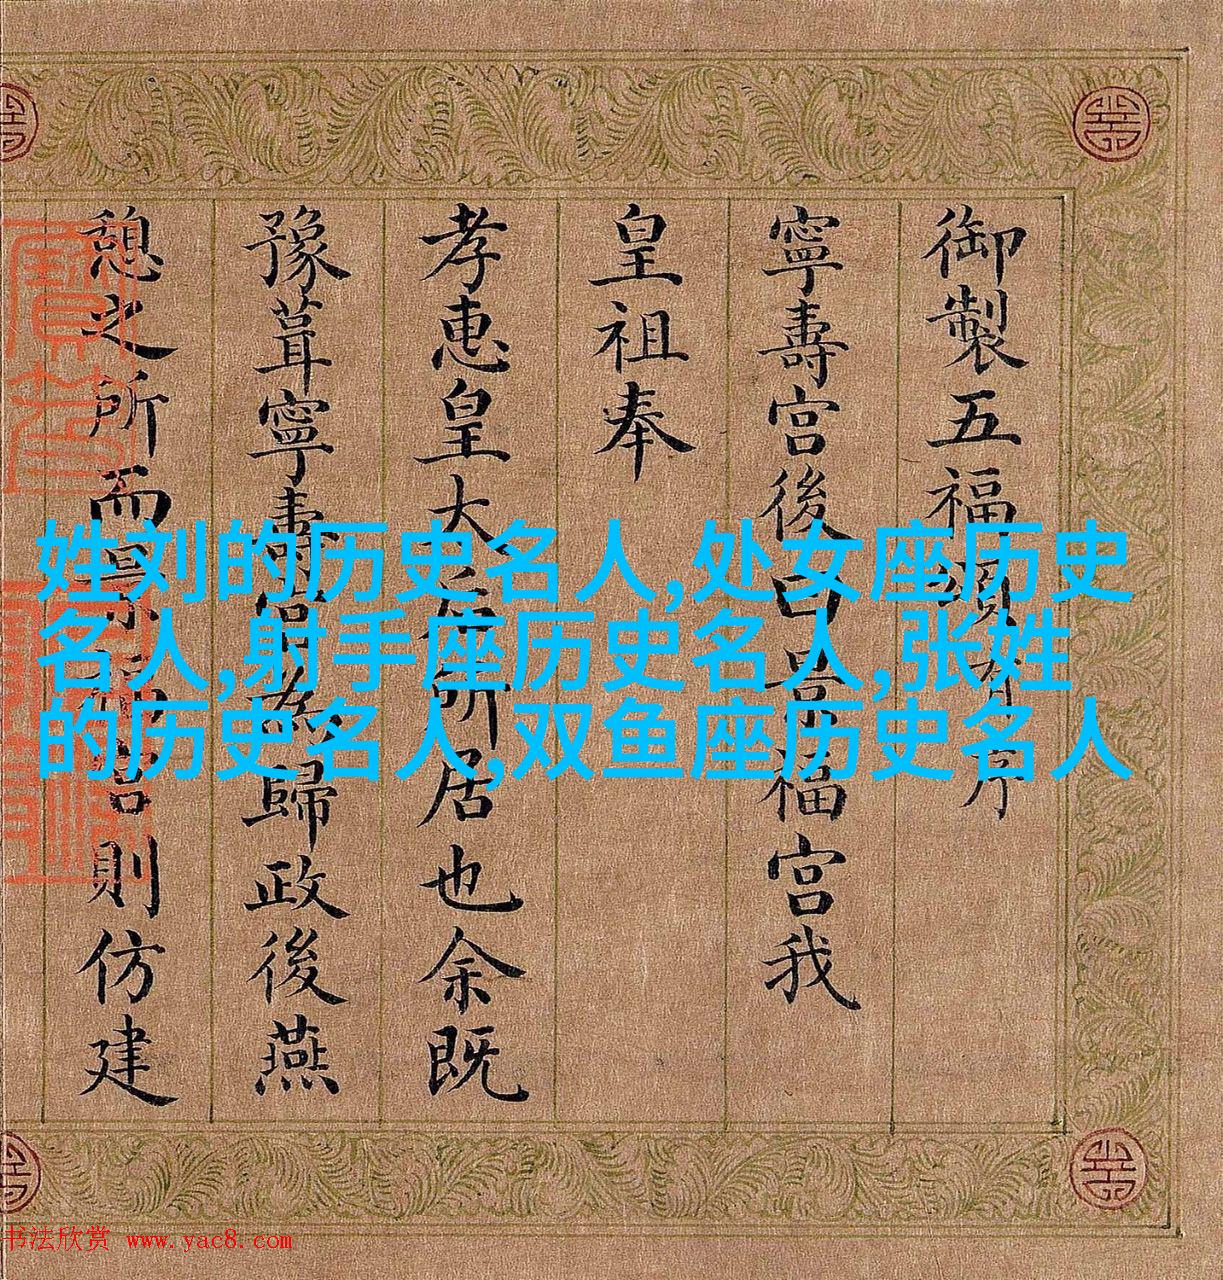 御製五福頌有序
寧壽宮後曰景福宮我
皇祖奉
孝惠皇太后所居也余既
豫葺寧壽宮為歸政後燕
憩之所而景福宮則仿建
姓刘的历史名人,处女座历史
名人,射手座历史名人,张姓
的历史名人,双鱼座历史名人
书法欣赏 www.yac8.com